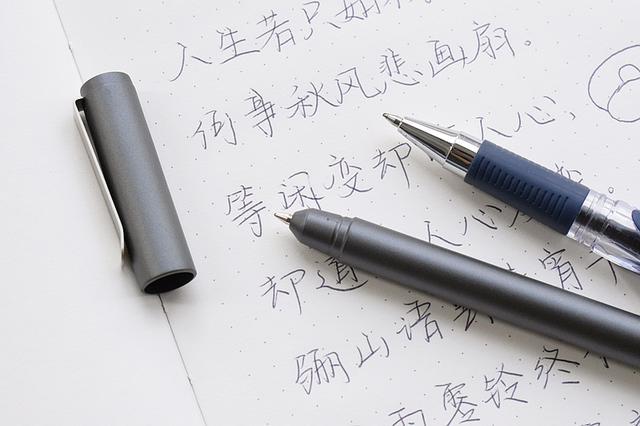 人生若只如
何事秋风悲画扇。
等闲变却人心,
却道人心
骊山语宵
雨零铃终